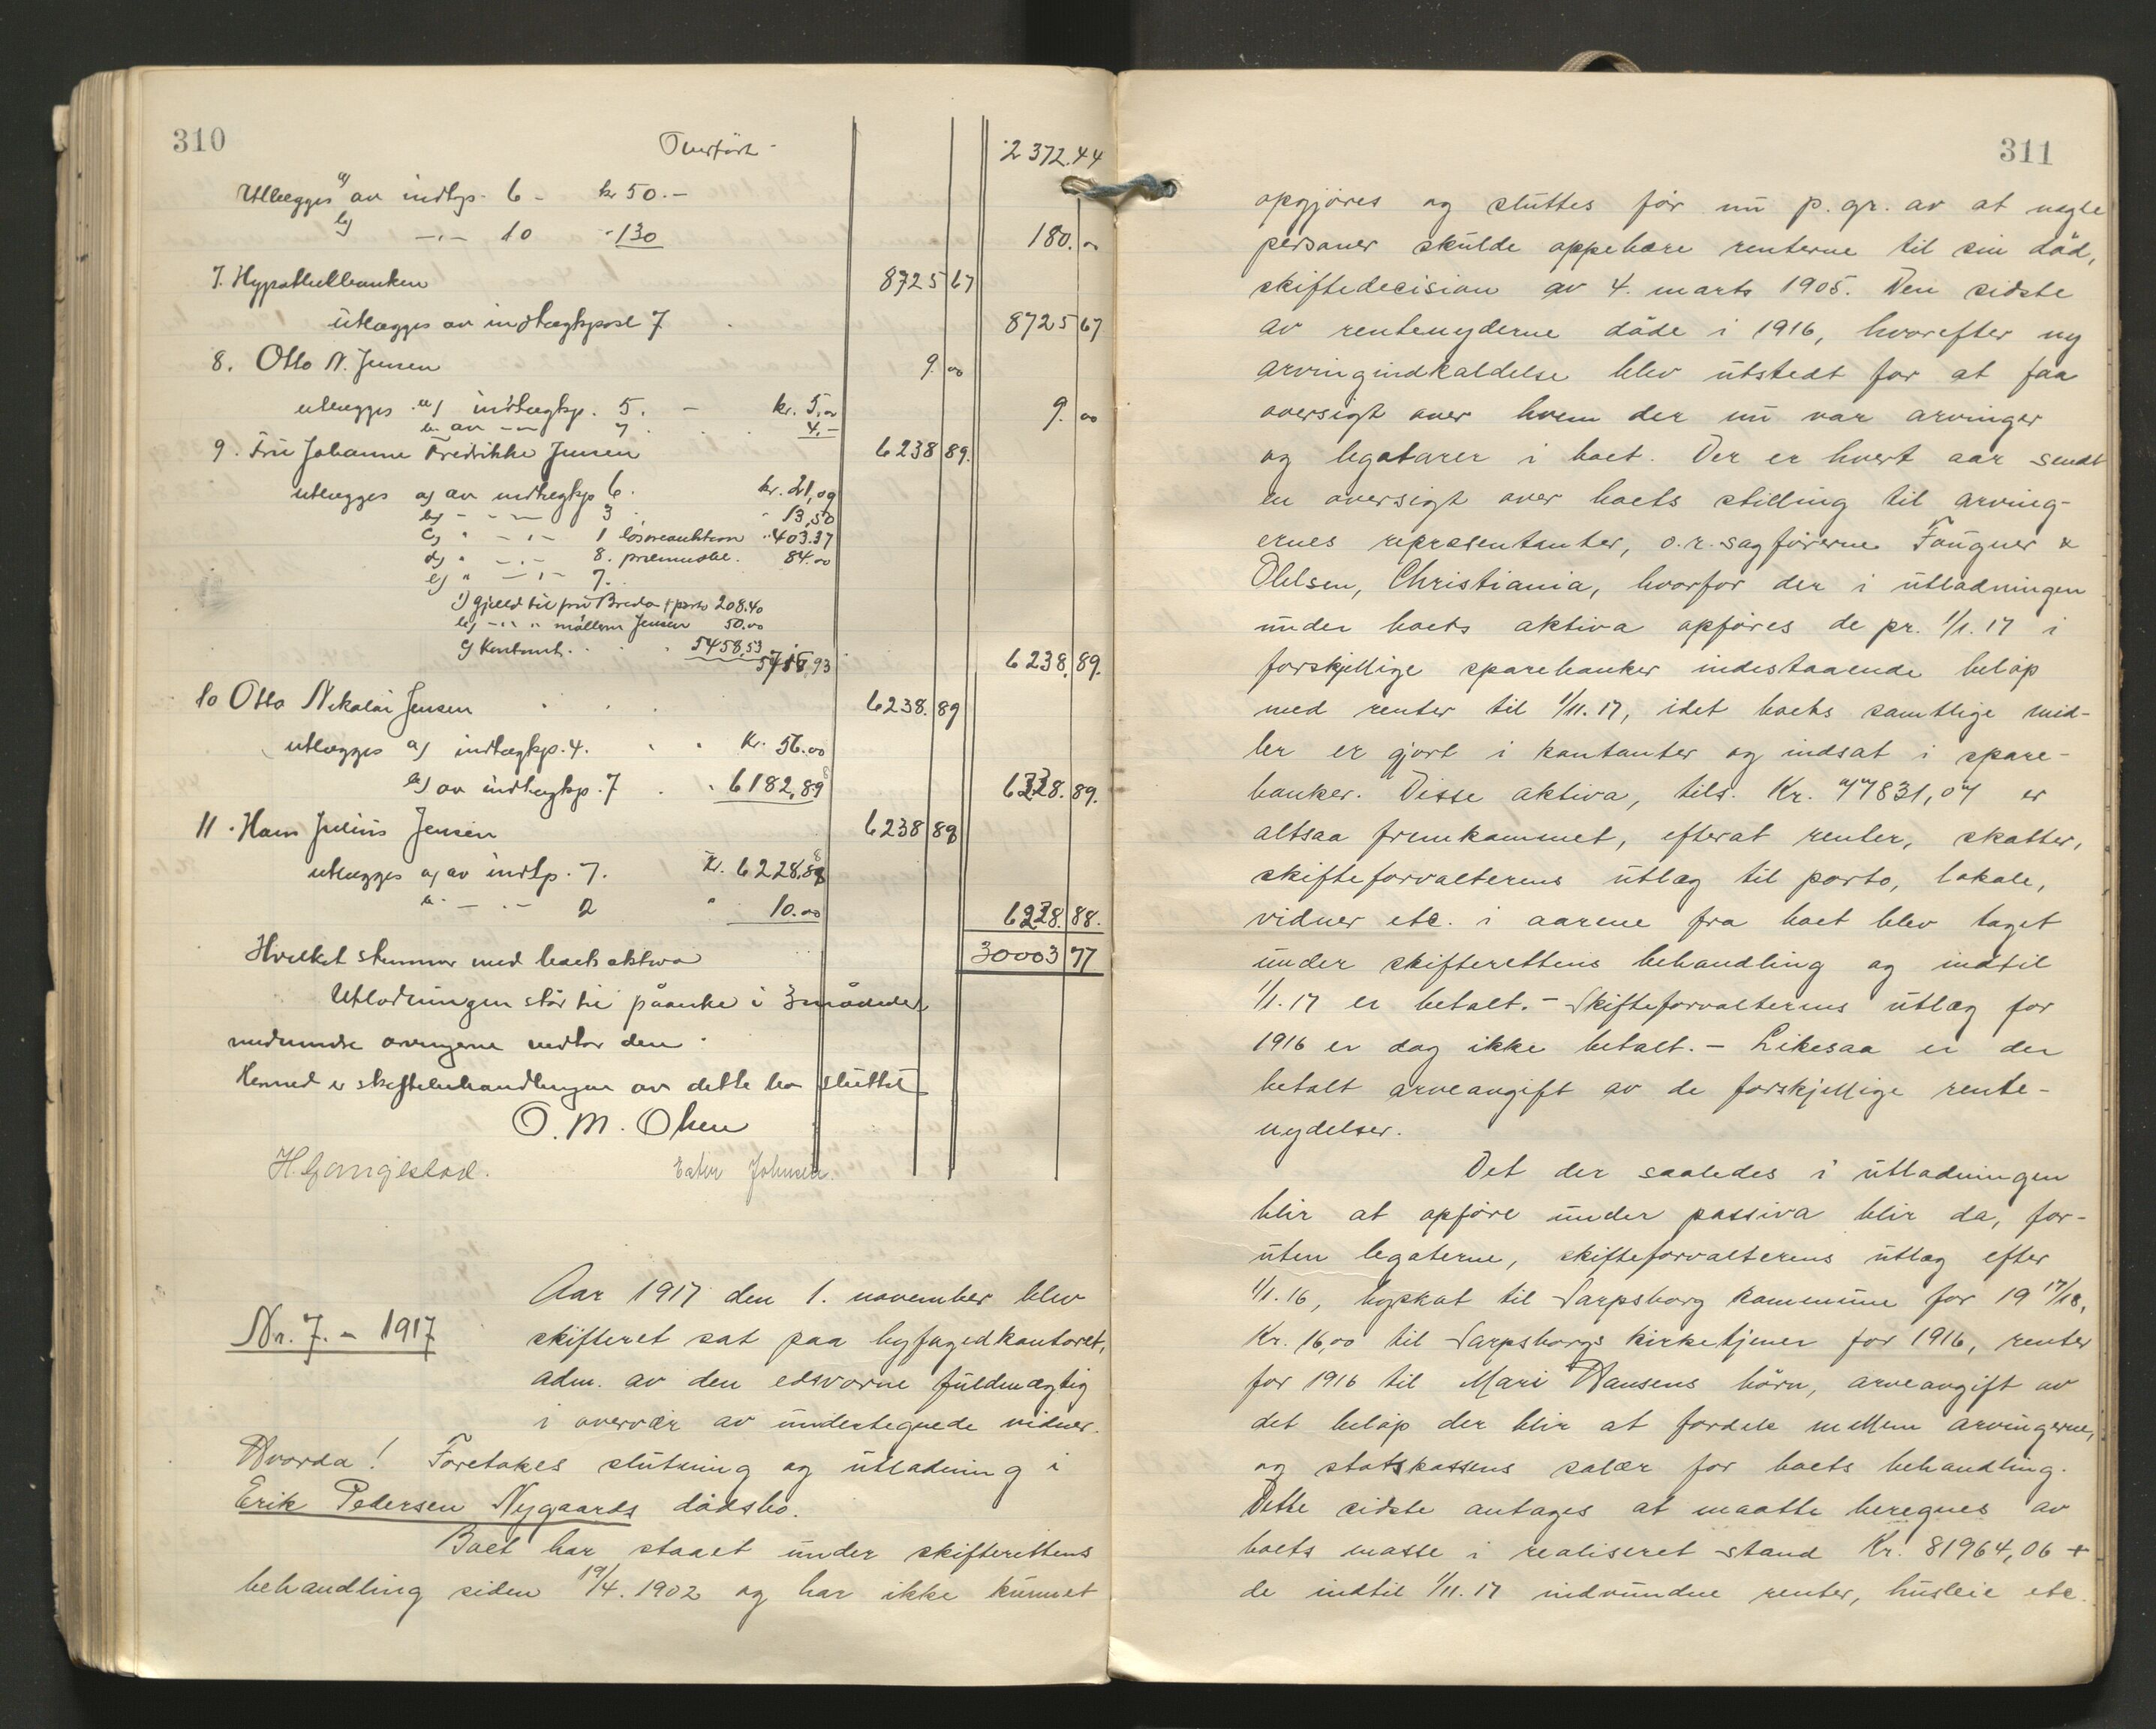 310
Overført - 2372.44
Utlægges a) av indtgp. 6 - kr 50.-
b) -"- 10 " 130 180.00
7. Hypothekbanken 8725 67
utlægges av indtægtspost 7 8725 67
8. Otto N. Jensen 9.00
utlægges a) indtægtp. 5. - kr. 5,00 9.00
b. av -"- 7 4.-
9. Fru Johanne Fredrikke Jensen 6238 89.
utlægges a) av indtægtp 6. kr. 21,09
b) - " - 3 " 13,50
c) " - " - 1 løsøreauktion " 403.37
d) " - " - 8. 84.00
e) " - " - 7.
1) gjæld til fru Breda + porto 208.40
b) - " " møllern Jensen 50.00
c) Kontant. 5458,53
93 6238.89.
10 Otto Nikolai Jensen 6238.89
utlægges a) indtægtp. 4. Kr. 56.00
b) av indtægtp. 7 " 6182,89 6238.89.
11. Hans Julius Jensen 6238 88
utlægges a) av indtp. 7. Kr. 6228,88
b. - " - 2 " 10.00 6238.88.
Hvilket stemmer med boets aktiva 30003 77
Utlodningen står til påanke i 3 måneder
medmindre arvingerne vedtar den.
Hermed er skiftebehandlingen av dette bo sluttet
O. M. Olsen
H. Gangestad. Ester Johnsen.
Nr. 7. - 1917
Aar 1917 den 1. november blev
skifteret sat paa byfogedkontoret,
adm. av den edsvorne fuldmægtig
i overvær av undertegnede vidner.
Hvorda! Foretokes slutning og utlodning i
Erik Pedersen Nygaards dødsbo.
Boet har staaet under skifterettens
behandling siden 19/4. 1902 og har ikke kunnet
311
opgjöres og sluttes før nu p. gr. av at nogle
personer skulde oppebære renterne til sin död,
skiftedecision av 4. marts 1905. Den sidste
av rentenyderne döde i 1916, hvorefter ny
arvingindkaldelse blev utstedt for at faa
oversigt over hvem der nu var arvinger
og legatarer i boet. Der er hvert aar sendt
en oversigt over boets stilling til arving-
ernes representanter, o.r. sagförerne Fougner &
Ohlsen, Christiania, hvorfor der i utlodningen
under boets aktiva opføres de pr. 1/1. 17 i
forskjellige sparebanker indestaaende belöp
med renter til 1/11. 17, idet boets samtlige mid-
ler er gjort i kontanter og indsat i spare-
banker. Disse aktiva, tils. Kr. 77831,07 er
altsaa fremkommet, efterat renter, skatter,
skifteforvalterens utlæg til porto, lokale,
vidner etc. i aarene fra boet blev taget
under skifterettens behandling og indtil
1/1. 17 er betalt. - Skifteforvalterens utlæg for
1916 er dog ikke betalt. - Likesaa er der
betalt arveavgift av de forskjellige rente-
nydelser.
Det der saaledes i utlodningen
blir at opföre under passiva blir da, for-
uten legaterne, skifteforvalterens utlæg efter
1/1. 16, byskat til Sarpsborg kommune for 19 17/18,
Kr. 16,00 til Sarpsborgs kirketjener for 1916, renter
for 1916 til Mari Hansens börn, arveavgift av
det belöp der blir at fordele mellem arvingerne,
og statskassens salær for boets behandling.
Dette sidste antages at maatte beregnes av
boets masse i realiseret stand Kr. 81964,06 +
de indtil 1/11. 17 indvundne renter, husleie etc.